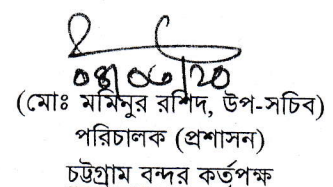 ০৪/০৬/২০
(মোঃ মমিনুর রশিদ, উপ-সচিব)
পরিচালক (প্রশাসন)
চট্টগ্রাম বন্দর কর্তৃপক্ষ